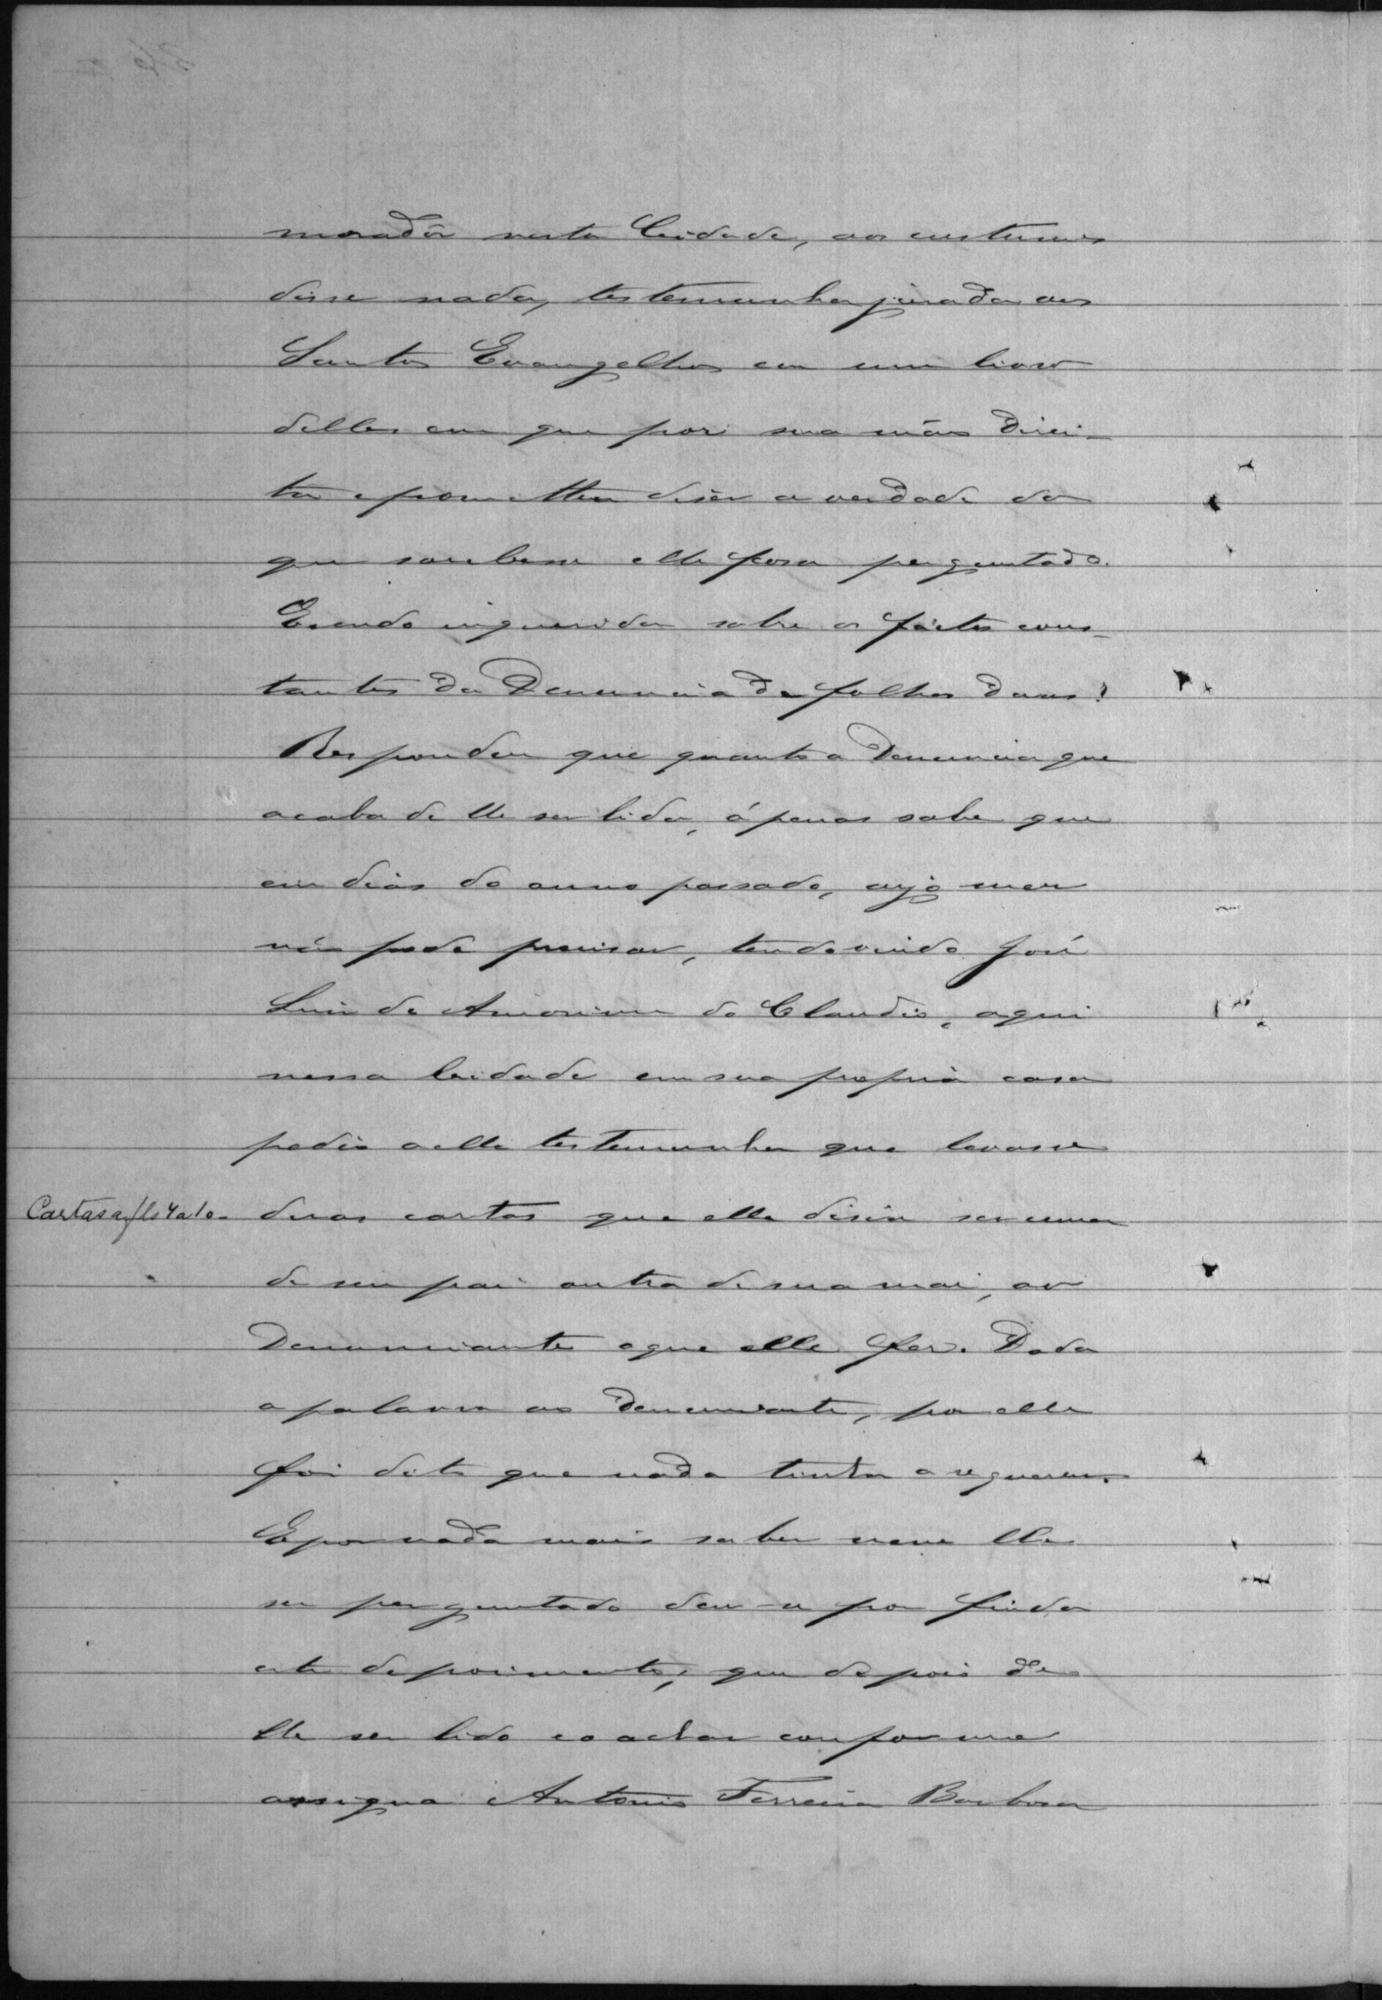 moradôr nesta Cidade, aos custumes
disse nada, testemunha jurada aos
Santos Evangelhos em um livro
delles em que pôs sua mão direi-
ta e prometteu diser a verdade do
que soubesse e lhe fosse perguntado.
E sendo inquerida sobre os factos cons-
tantes da Denuncia de folhas duas?
Respondeu que quanto a Denuncia que
acaba de lhe ser lida, ápenas sabe que
em dias do anno passado, cujo mez
não pode precisar, tendo vindo José
Luis de Amorim do Claudio, aqui
nessa Cidade em sua propria casa
pedio a elle testemunha que levasse
Cartas a fls 9 a 10- duas cartas que elle disia ser uma
de seu pai outra de sua mai, ao
Denunciante o que elle fez. Dada
a palavra ao Denunciante, por elle
foi dito que nada tinha a requerer.
E por nada mais saber nem lhe
ser perguntado deu-se por findo
este depoimento, que depois de
lhe ser lido e o achar conforme
assigna Antonio Ferreira Barbosa